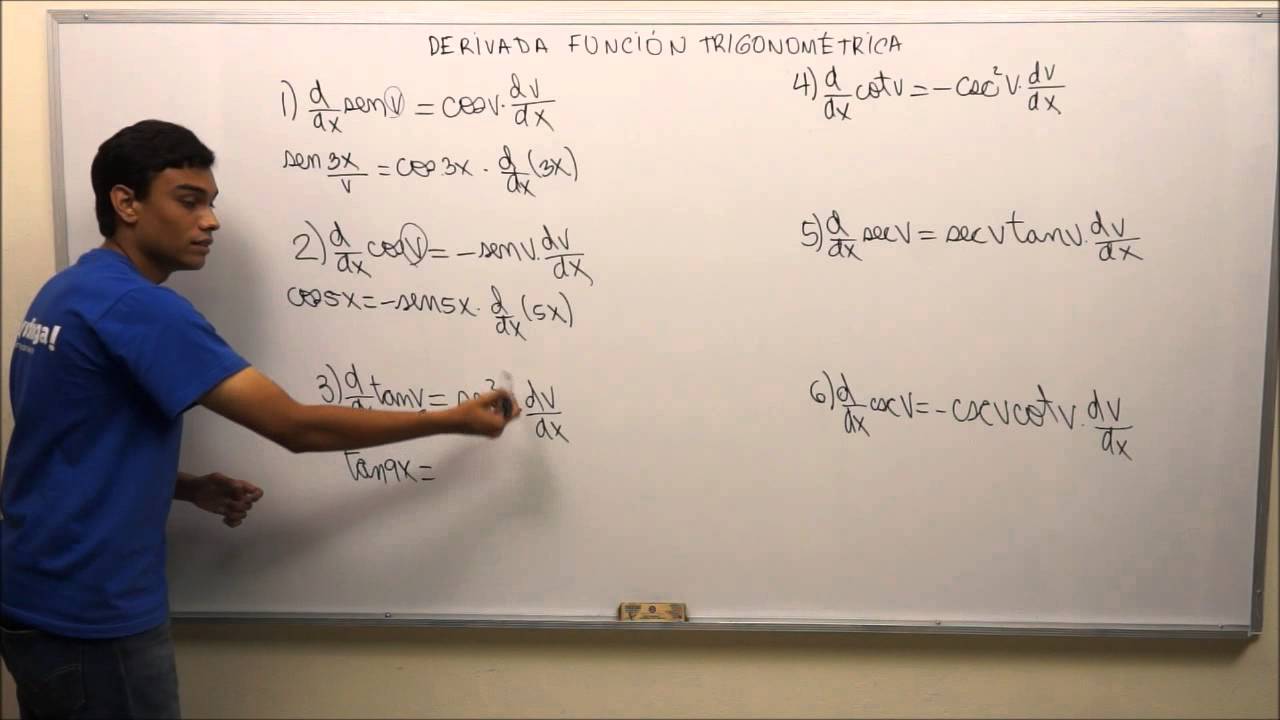 DERIVADA FUNCIÓN TRIGONOMÉTRICA
1) d/dx sen v = cos v · dv/dx
sen 3x/v = cos 3x · d/dx (3x)
2) d/dx cos v = - sen v · dv/dx
cos 5x = - sen 5x · d/dx (5x)
3) d/dx tan v = dv/dx
tan 9x =
4) d/dx cot v = - csc² v · dv/dx
5) d/dx sec v = sec v tan v · dv/dx
6) d/dx csc v = - csc v cot v · dv/dx